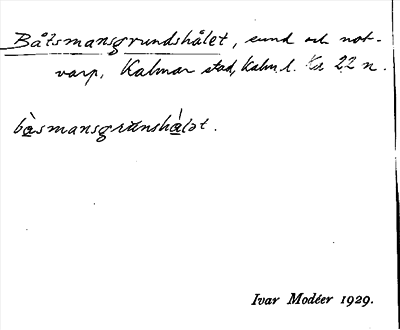 Båtsmansgrundshålet, sund och not-
varp, Kalmar stad, Kalm. l. Ka 22 n.
bàsmansgrunshàlət.
Ivar Modéer 1929.